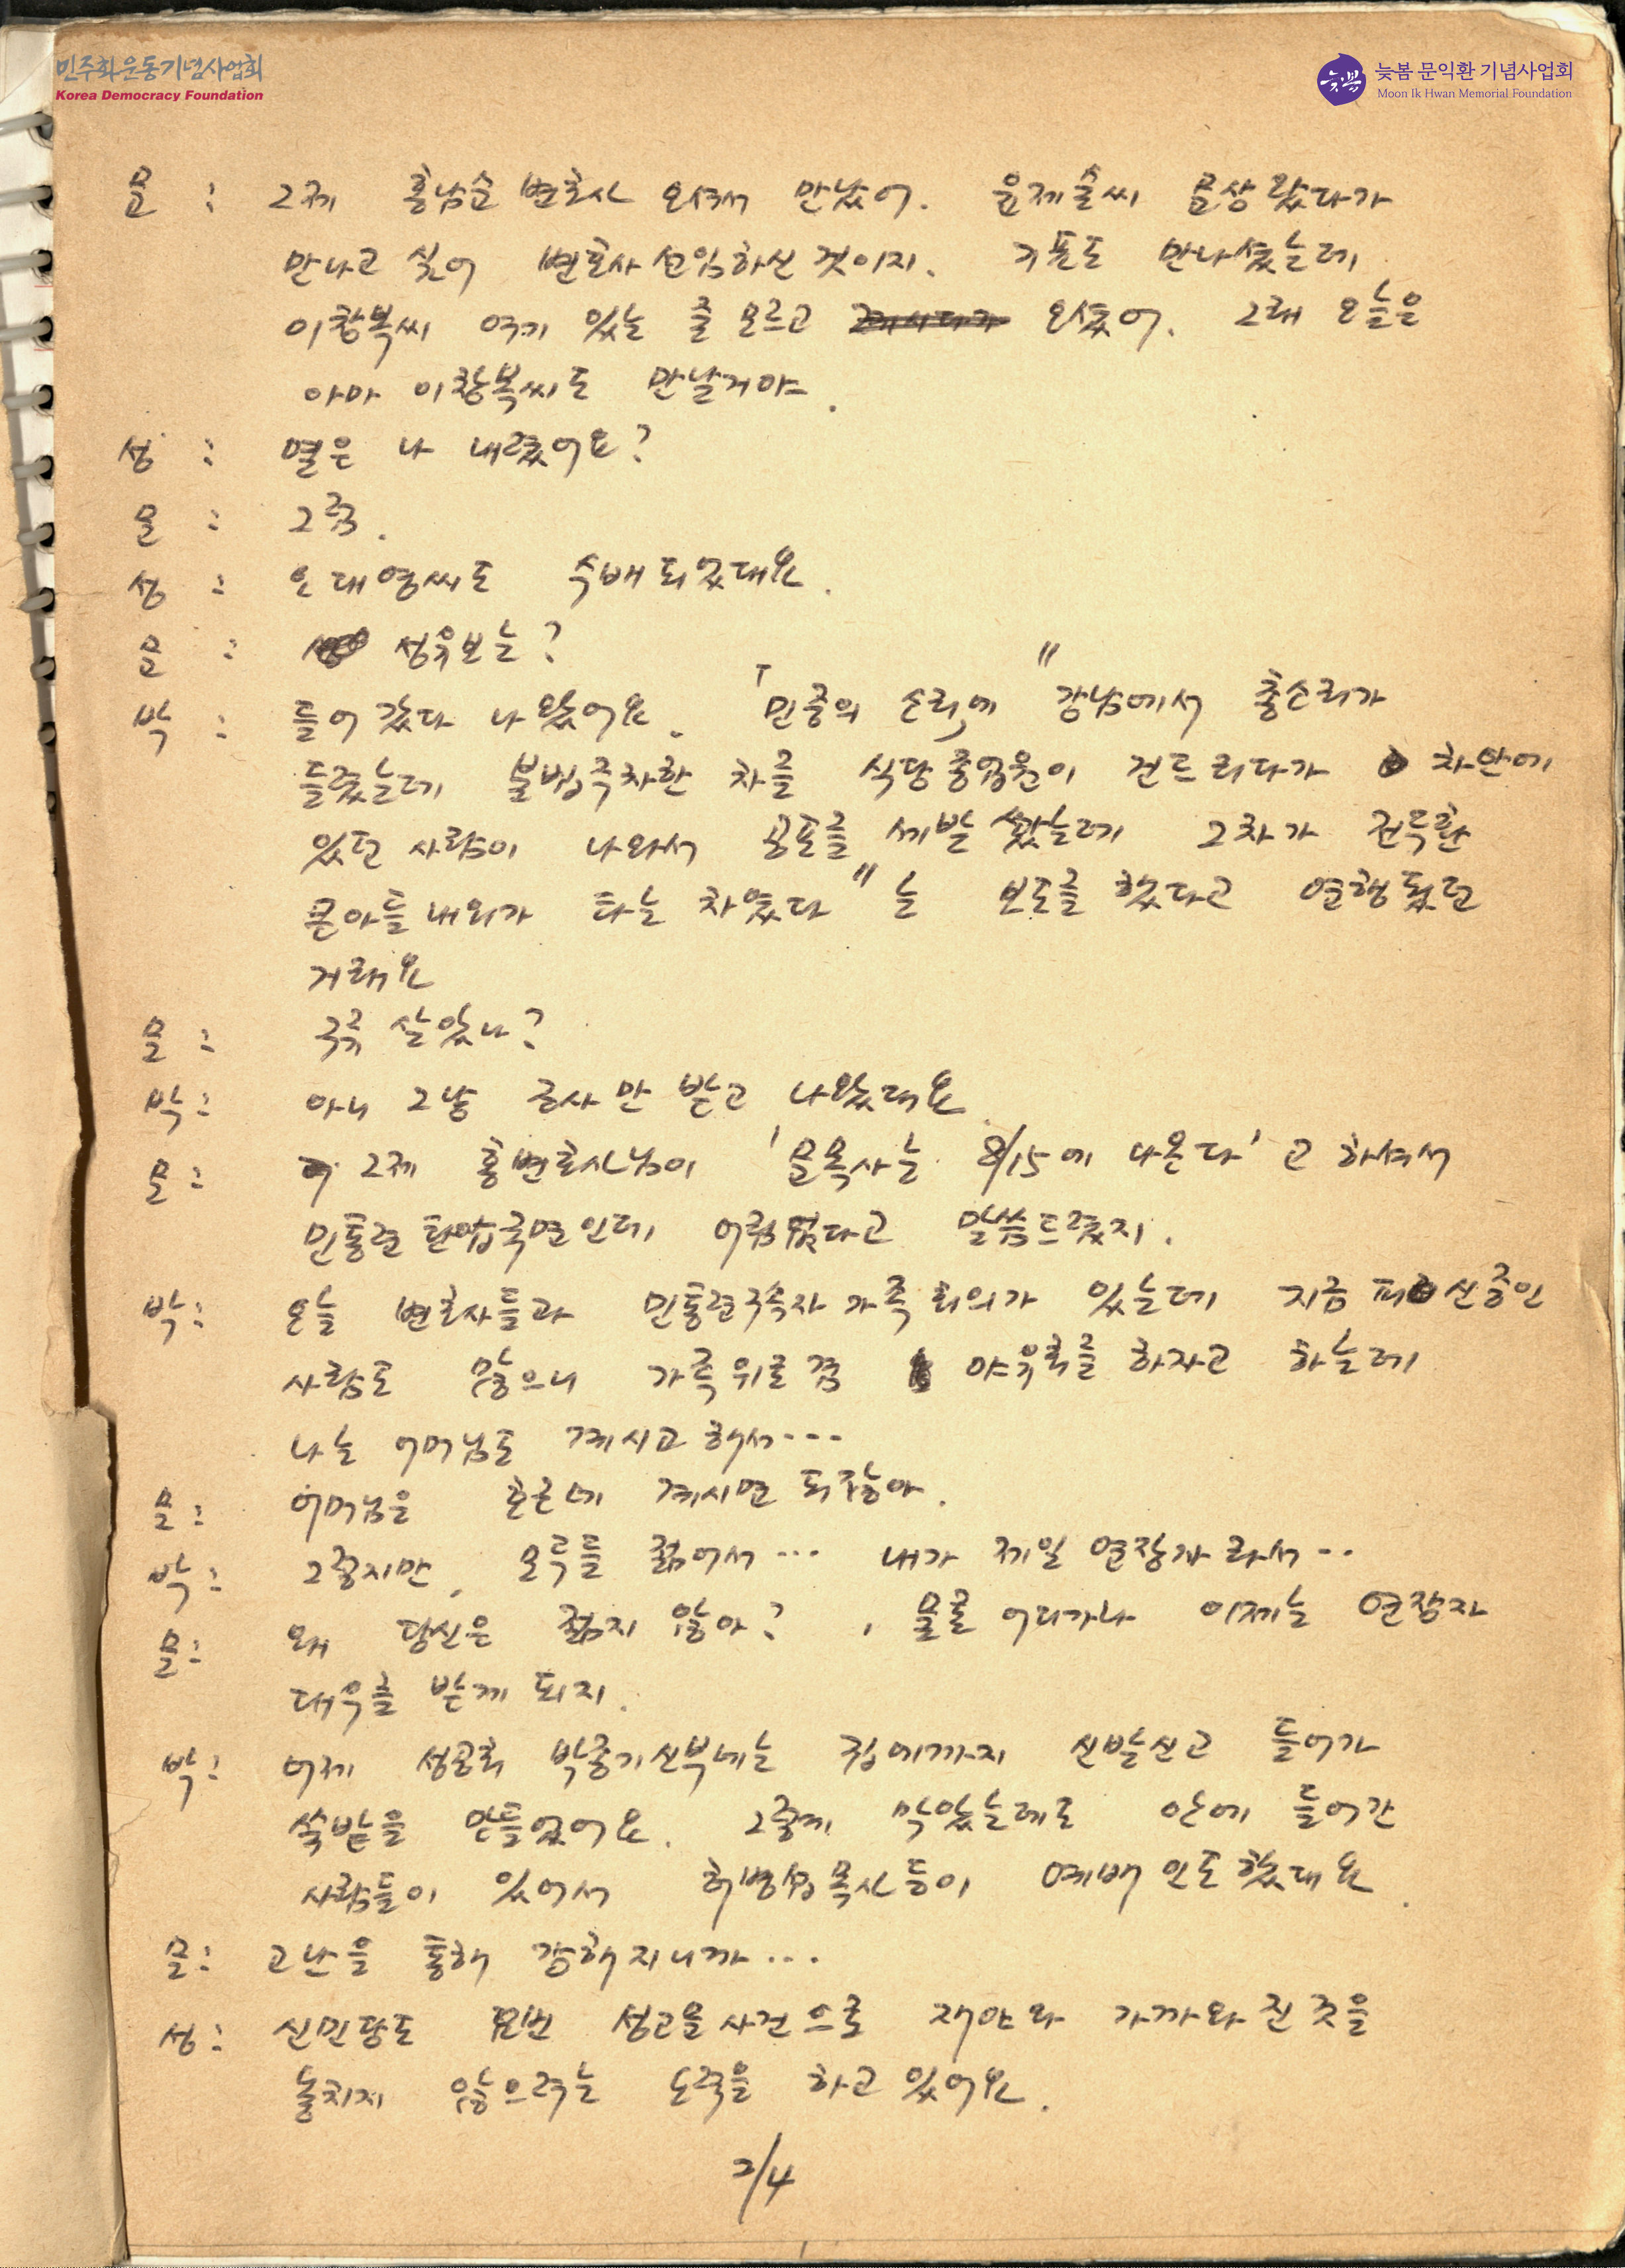 민주화운동기념사업회
Korea Democracy Foundation
늦봄
늦봄 문익환 기념사업회
Moon Ik Hwan Memorial Foundation
문 : 그제 홍남순 변호사 오셔서 만났어. 윤제술씨 문상 왔다가
만나고 싶어 변호사 선임하신 것이지. 계훈도 만나셨는데
이창복씨 여기 있는 줄 모르고 오셨어. 그래 오늘은
아마 이창복씨도 만날거야.
성 : 열은 나 내렸어요?
문 : 그럼.
성 : 인대영씨도 수배되었대요.
문 : 성유보는?
박 : 들어 갔다 나왔어요. 「민중의 소리」에 "강남에서 총소리가
들렸는데 불법주차한 차를 식당종업원이 건드리다가 차안에
있던 사람이 나와서 공포를 세발 쐈는데 그차가 전두환
큰아들내외가 타는 차였다"는 보도를 했다고 연행됬던
거래요
문 : 구류 살았나?
박 : 아니 그냥 조사만 받고 나왔대요.
문 : 그제 홍변호사님이 '문목사는 8/15에 나온다'고 하셔서
민통련 탄압국면인데 어림없다고 말씀드렸지.
박 : 오늘 변호사들과 민통련구속자가족 회의가 있는데 지금 피신중인
사람도 많으니 가족위로 겸 야유회를 하자고 하는데
나는 어머님도 계시고 해서...
문 : 어머님은 호근네 계시면 되잖아.
박 : 그렇지만, 모두들 젊어서... 내가 제일 연장자라서..
문 : 왜 당신은 젊지 않아? 물론 어디가나 이제는 연장자
대우를 받게 되지.
박 : 어제 성공회 박종기신부네는 집에까지 신발신고 들어가
쑥밭을 만들었어요. 그렇게 막았는데도 안에 들어간
사람들이 있어서 허병섭목사등이 예배인도했대요.
문 : 고난을 통해 강해지니까...
성 : 신민당도 요번 성고문사건으로 재야와 가까와진 것을
놓치지 않으려는 노력을 하고 있어요.
2/4